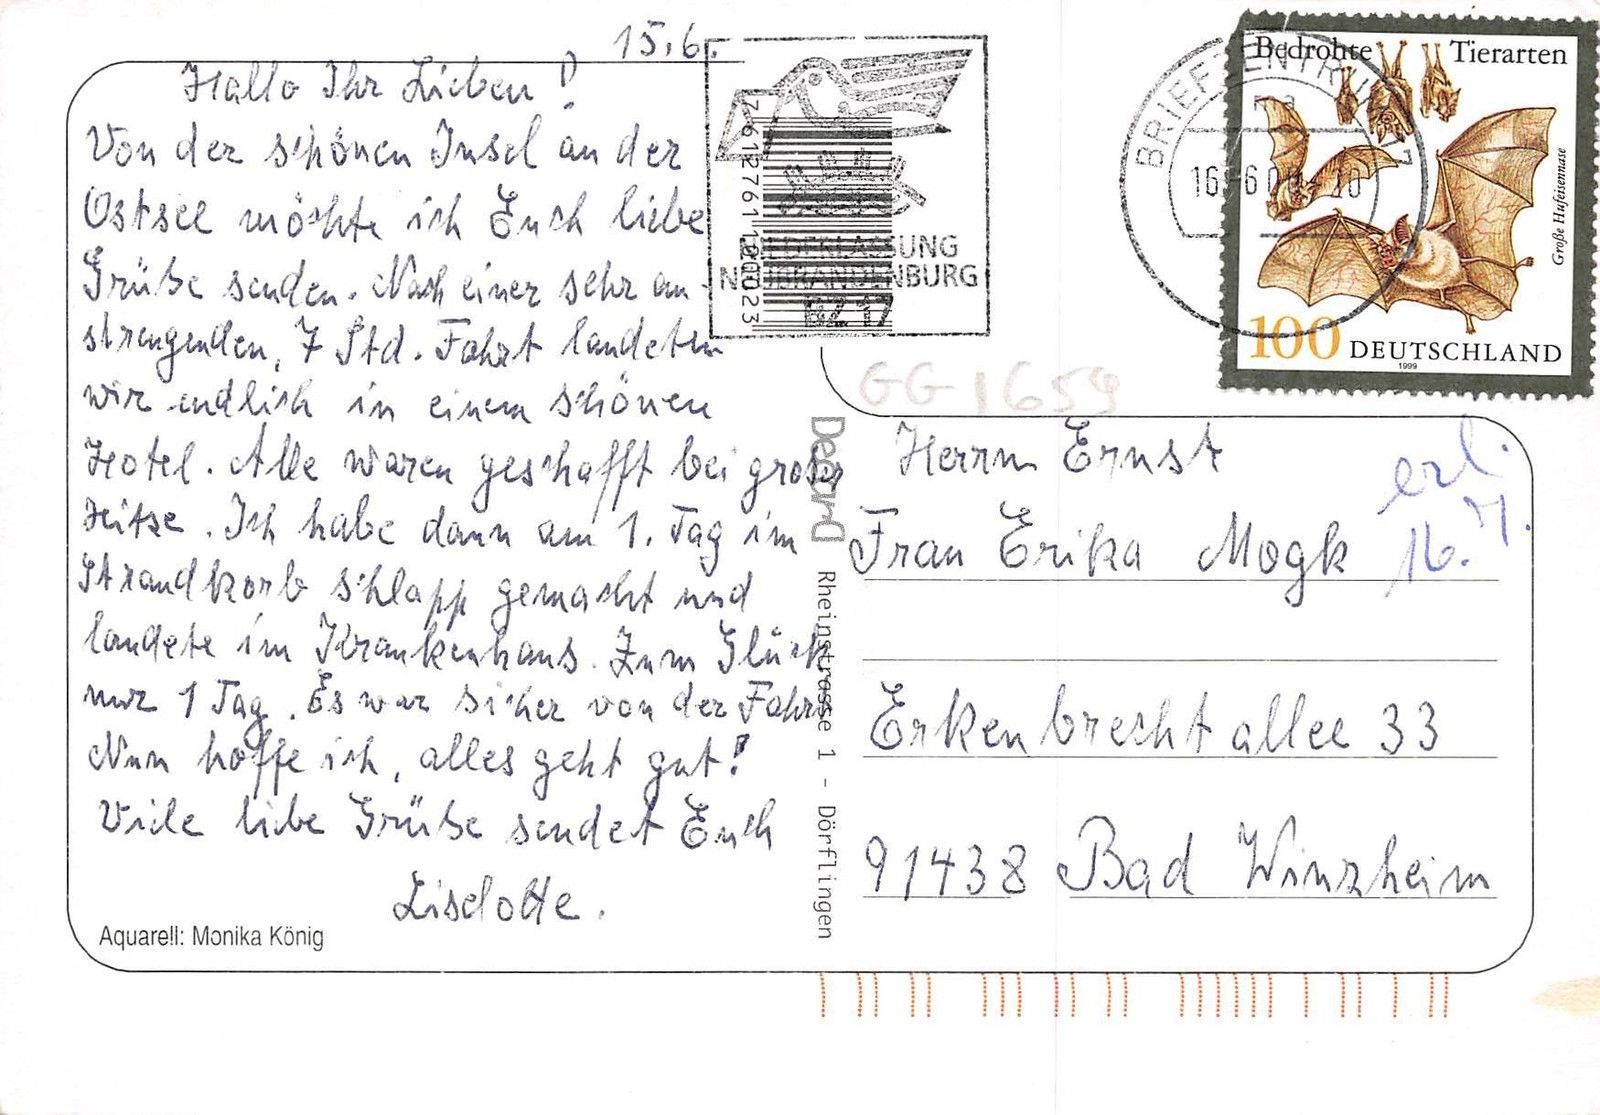 15.6.
Hallo Ihr Lieben!
Von der schönen Insel an der
Ostsee möchte ich Euch liebe
Grüße senden. Nach einer sehr an
strengenden, 7 Std. Fahrt landeten
wir endlich in einem schönen
Hotel. Alle waren geschafft bei großer
Hitze. Ich habe dann am 1. Tag im
Strandkorb schlapp gemacht und
landete im Krankenhaus. Zum Glück
nur 1 Tag. Es war sicher von der Fahrt.
Nun hoffe ich, alles geht gut!
Viele liebe Grüße sendet Euch
Liselotte.
Aquarell: Monika König
761276110002
NIEDERLASSUNG
NEUBRANDENBURG
BZ 17
BRIEFZENTRUM 17
16.-6.00
Bedrohte Tierarten
Große Hufeisennase
100 DEUTSCHLAND
1999
GG 1659
Rheinstrasse 1 - Dörflingen
Herrn Ernst
Frau Erika Mogk
erl.
16. 7.
Erkenbrechtallee 33
91438 Bad Winzheim